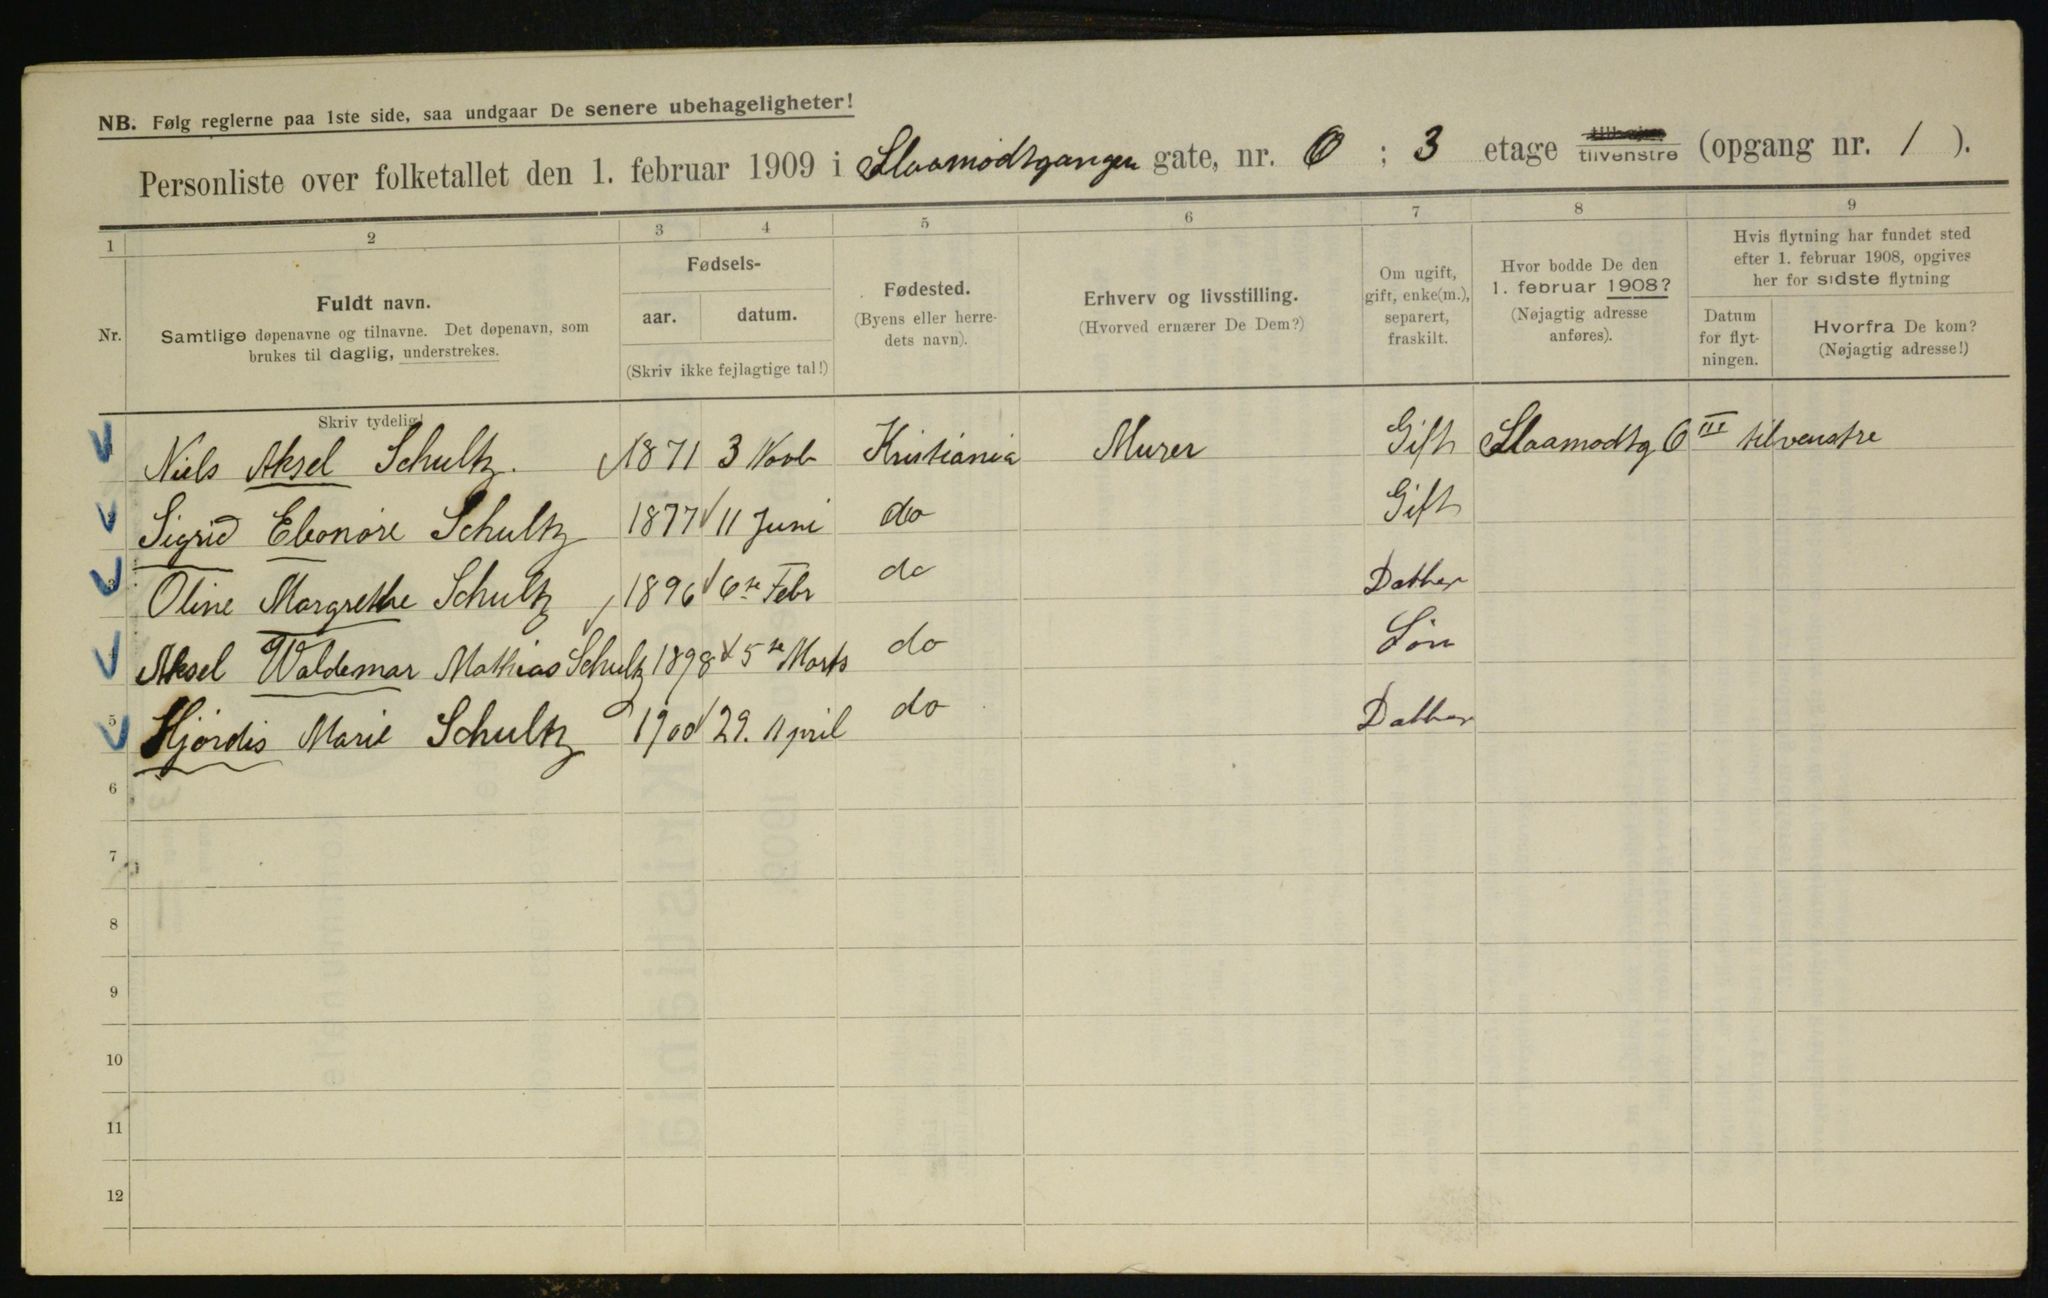 NB. Følg reglerne paa 1ste side, saa undgaar De senere ubehageligheter!
Personliste over folketallet den 1. februar 1909 i Slaamodtgangen gate, nr. 6 ; 3 etage tilvenstre (opgang nr. 1 ).
1 2 3 4 5 6 7 8 9
Nr.
Fuldt navn.
Samtlige døpenavne og tilnavne. Det døpenavn, som
brukes til daglig, understrekes.
Fødsels-
aar. datum.
(Skriv ikke fejlagtige tal!)
Fødested.
(Byens eller herre-
dets navn).
Erhverv og livsstilling.
(Hvorved ernærer De Dem?)
Om ugift,
gift, enke(m.),
separert,
fraskilt.
Hvor bodde De den
1. februar 1908?
(Nøjagtig adresse
anføres).
Hvis flytning har fundet sted
efter 1. februar 1908, opgives
her for sidste flytning
Datum
for flyt-
ningen.
Hvorfra De kom?
(Nøjagtig adresse!)
Skriv tydelig!
Niels Aksel Schultz. 1871 3 Novb Kristiania Murer Gift Slaamodtg 6 III tilvenstre
Sigrid Eleonore Schultz 1877 11 Juni do Gift
Oline Margrethe Schultz 1896 6te Febr do Datter
Aksel Waldemar Mathias Schultz 1898 5te Marts do Søn
5 Hjørdis Marie Schultz 1900 29. April do Datter
6
7
8
9
10
11
12